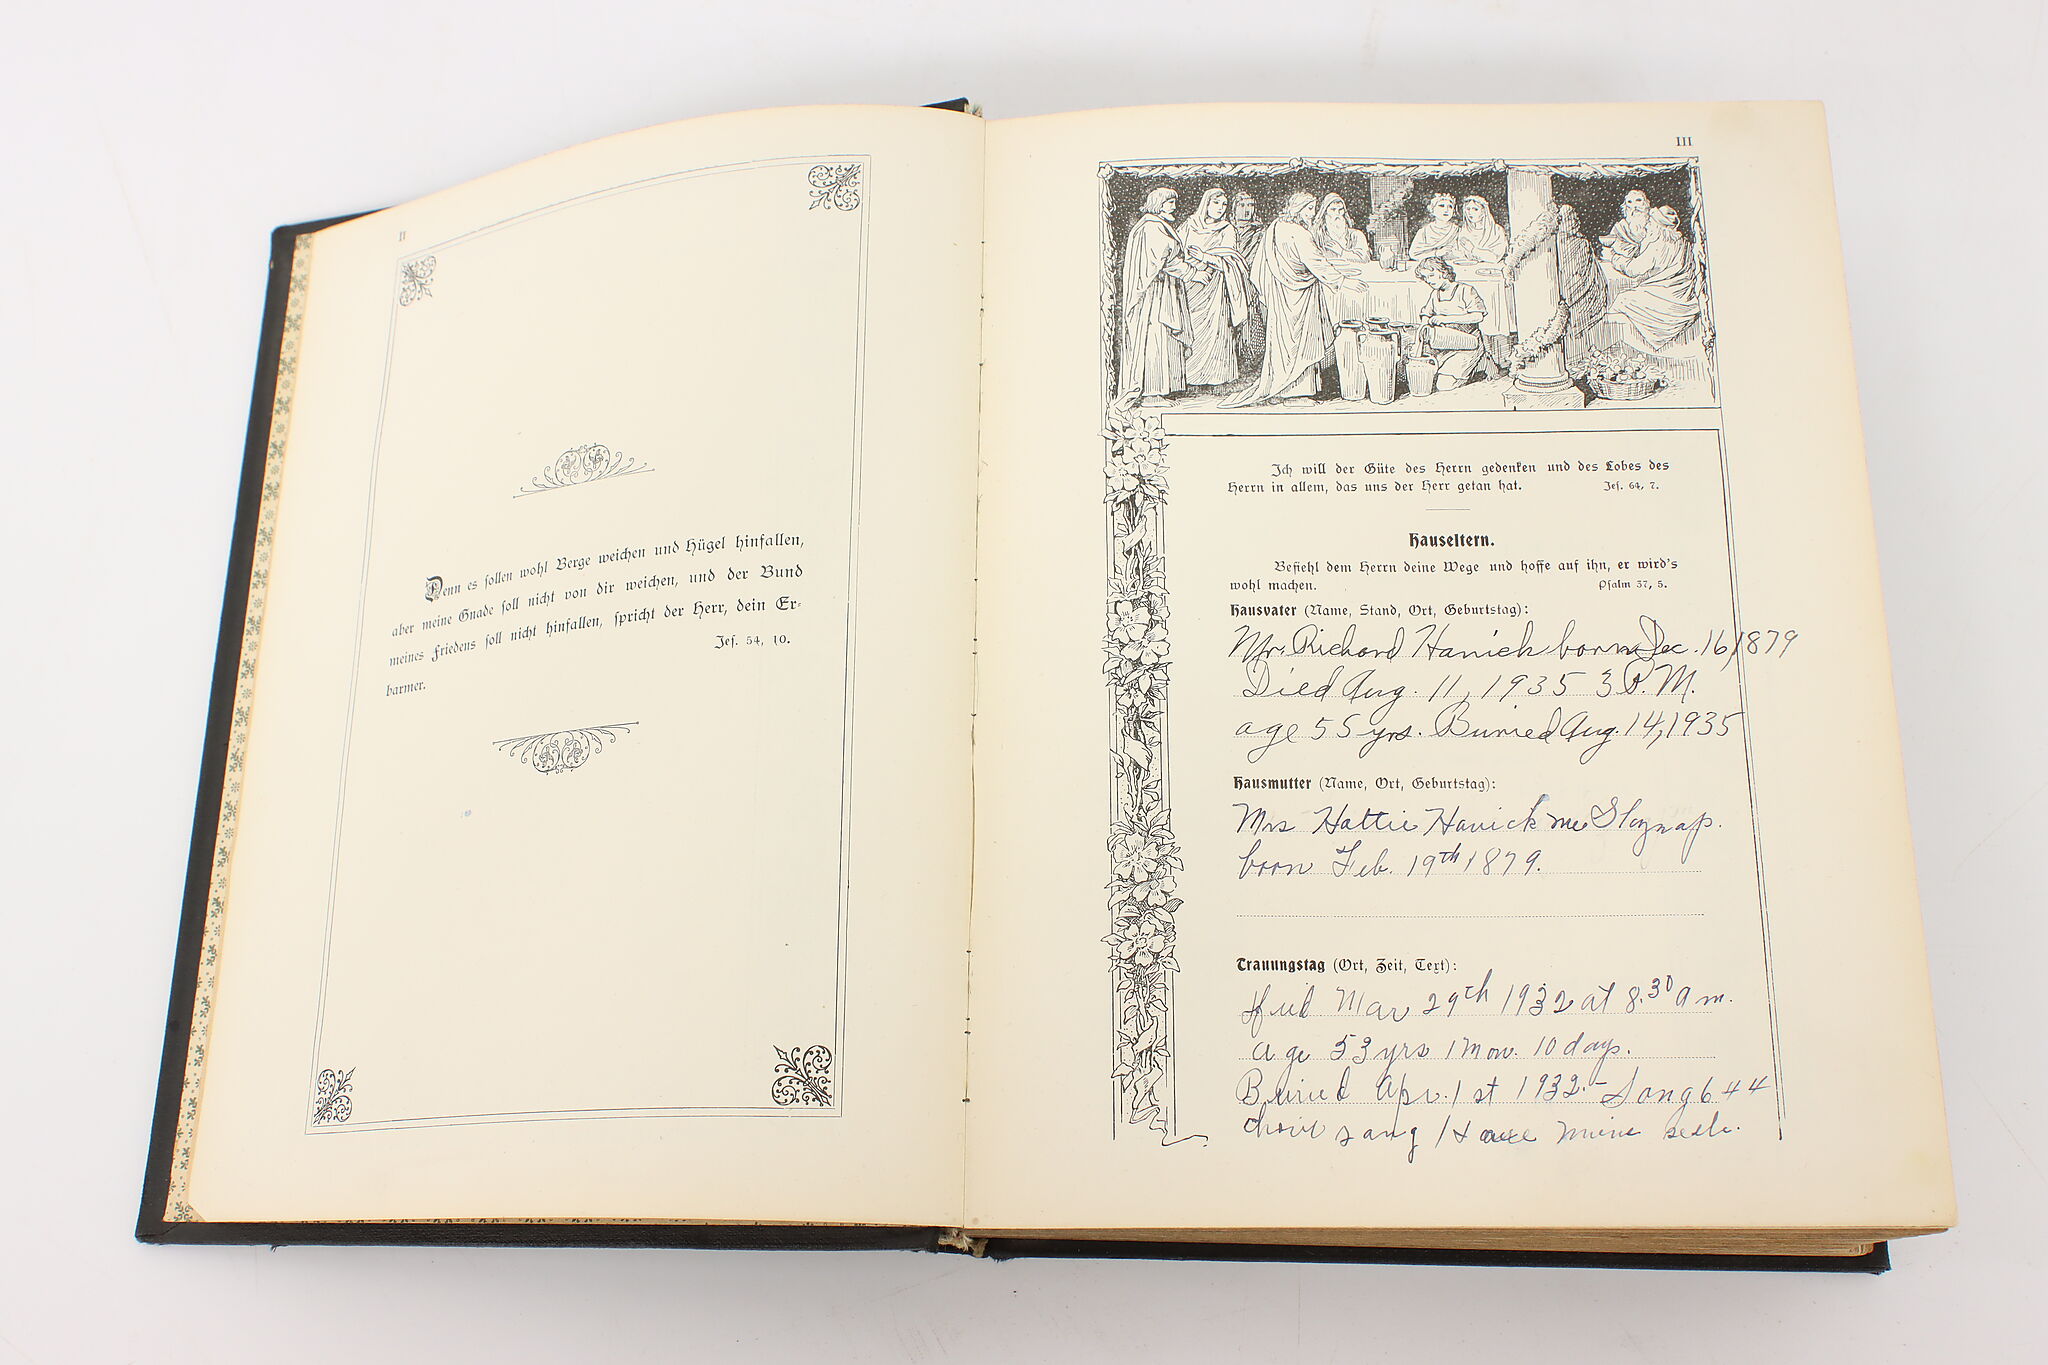 II
Denn es sollen wohl Berge weichen und Hügel hinfallen,
aber meine Gnade soll nicht von dir weichen, und der Bund
meines Friedens soll nicht hinfallen, spricht der Herr, dein Er-
barmer.
Jes. 54, 10.
III
Ich will der Güte des Herrn gedenken und des Lobes des
Herrn in allem, das uns der Herr getan hat. Jes. 64, 7.
Hauseltern.
Befiehl dem Herrn deine Wege und hoffe auf ihn, er wird's
wohl machen. Psalm 37, 5.
Hausvater (Name, Stand, Ort, Geburtstag):
Mr. Richard Hanick born Dec. 16, 1879
Died Aug. 11, 1935 3 P.M.
age 55 yrs. Buried Aug. 14, 1935
Hausmutter (Name, Ort, Geburtstag):
Mrs Hattie Hanick
born Feb. 19th 1879.
Trauungstag (Ort, Zeit, Text):
Mar 29th 1932 at 8.30 a m.
age 53 yrs 1 Mon. 10 days.
Buried Apr. 1st 1932. - Song 644
Choir sang Harre meine